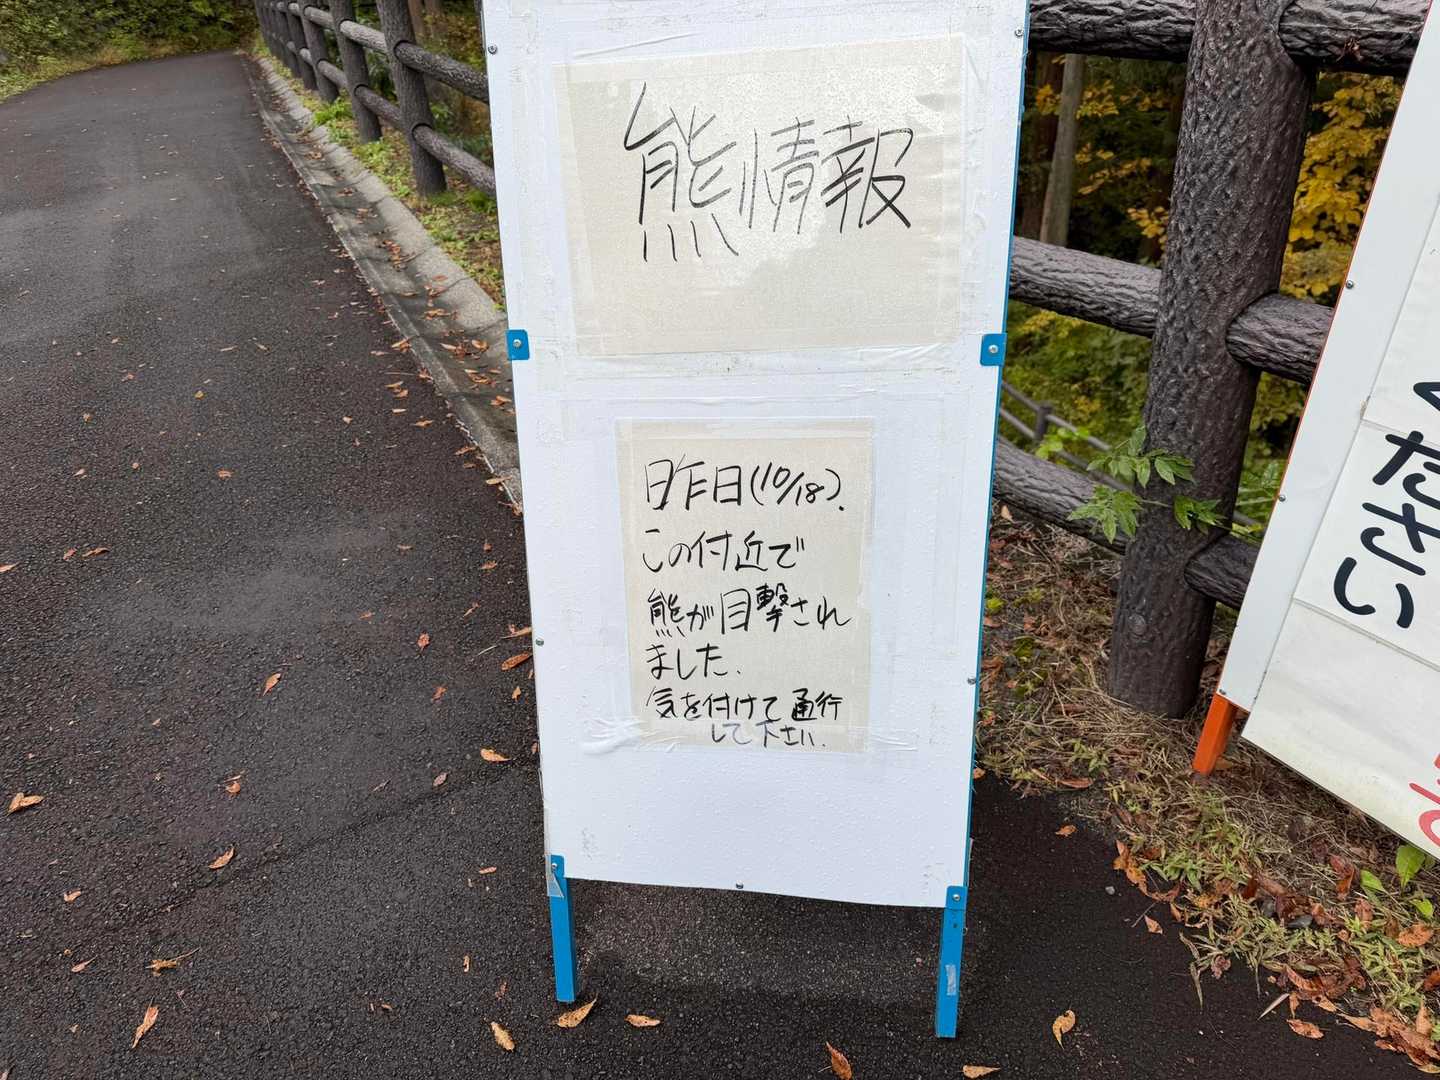 熊情報
昨日(10/18).
この付近で
熊が目撃され
ました.
気を付けて通行
して下さい.
ください